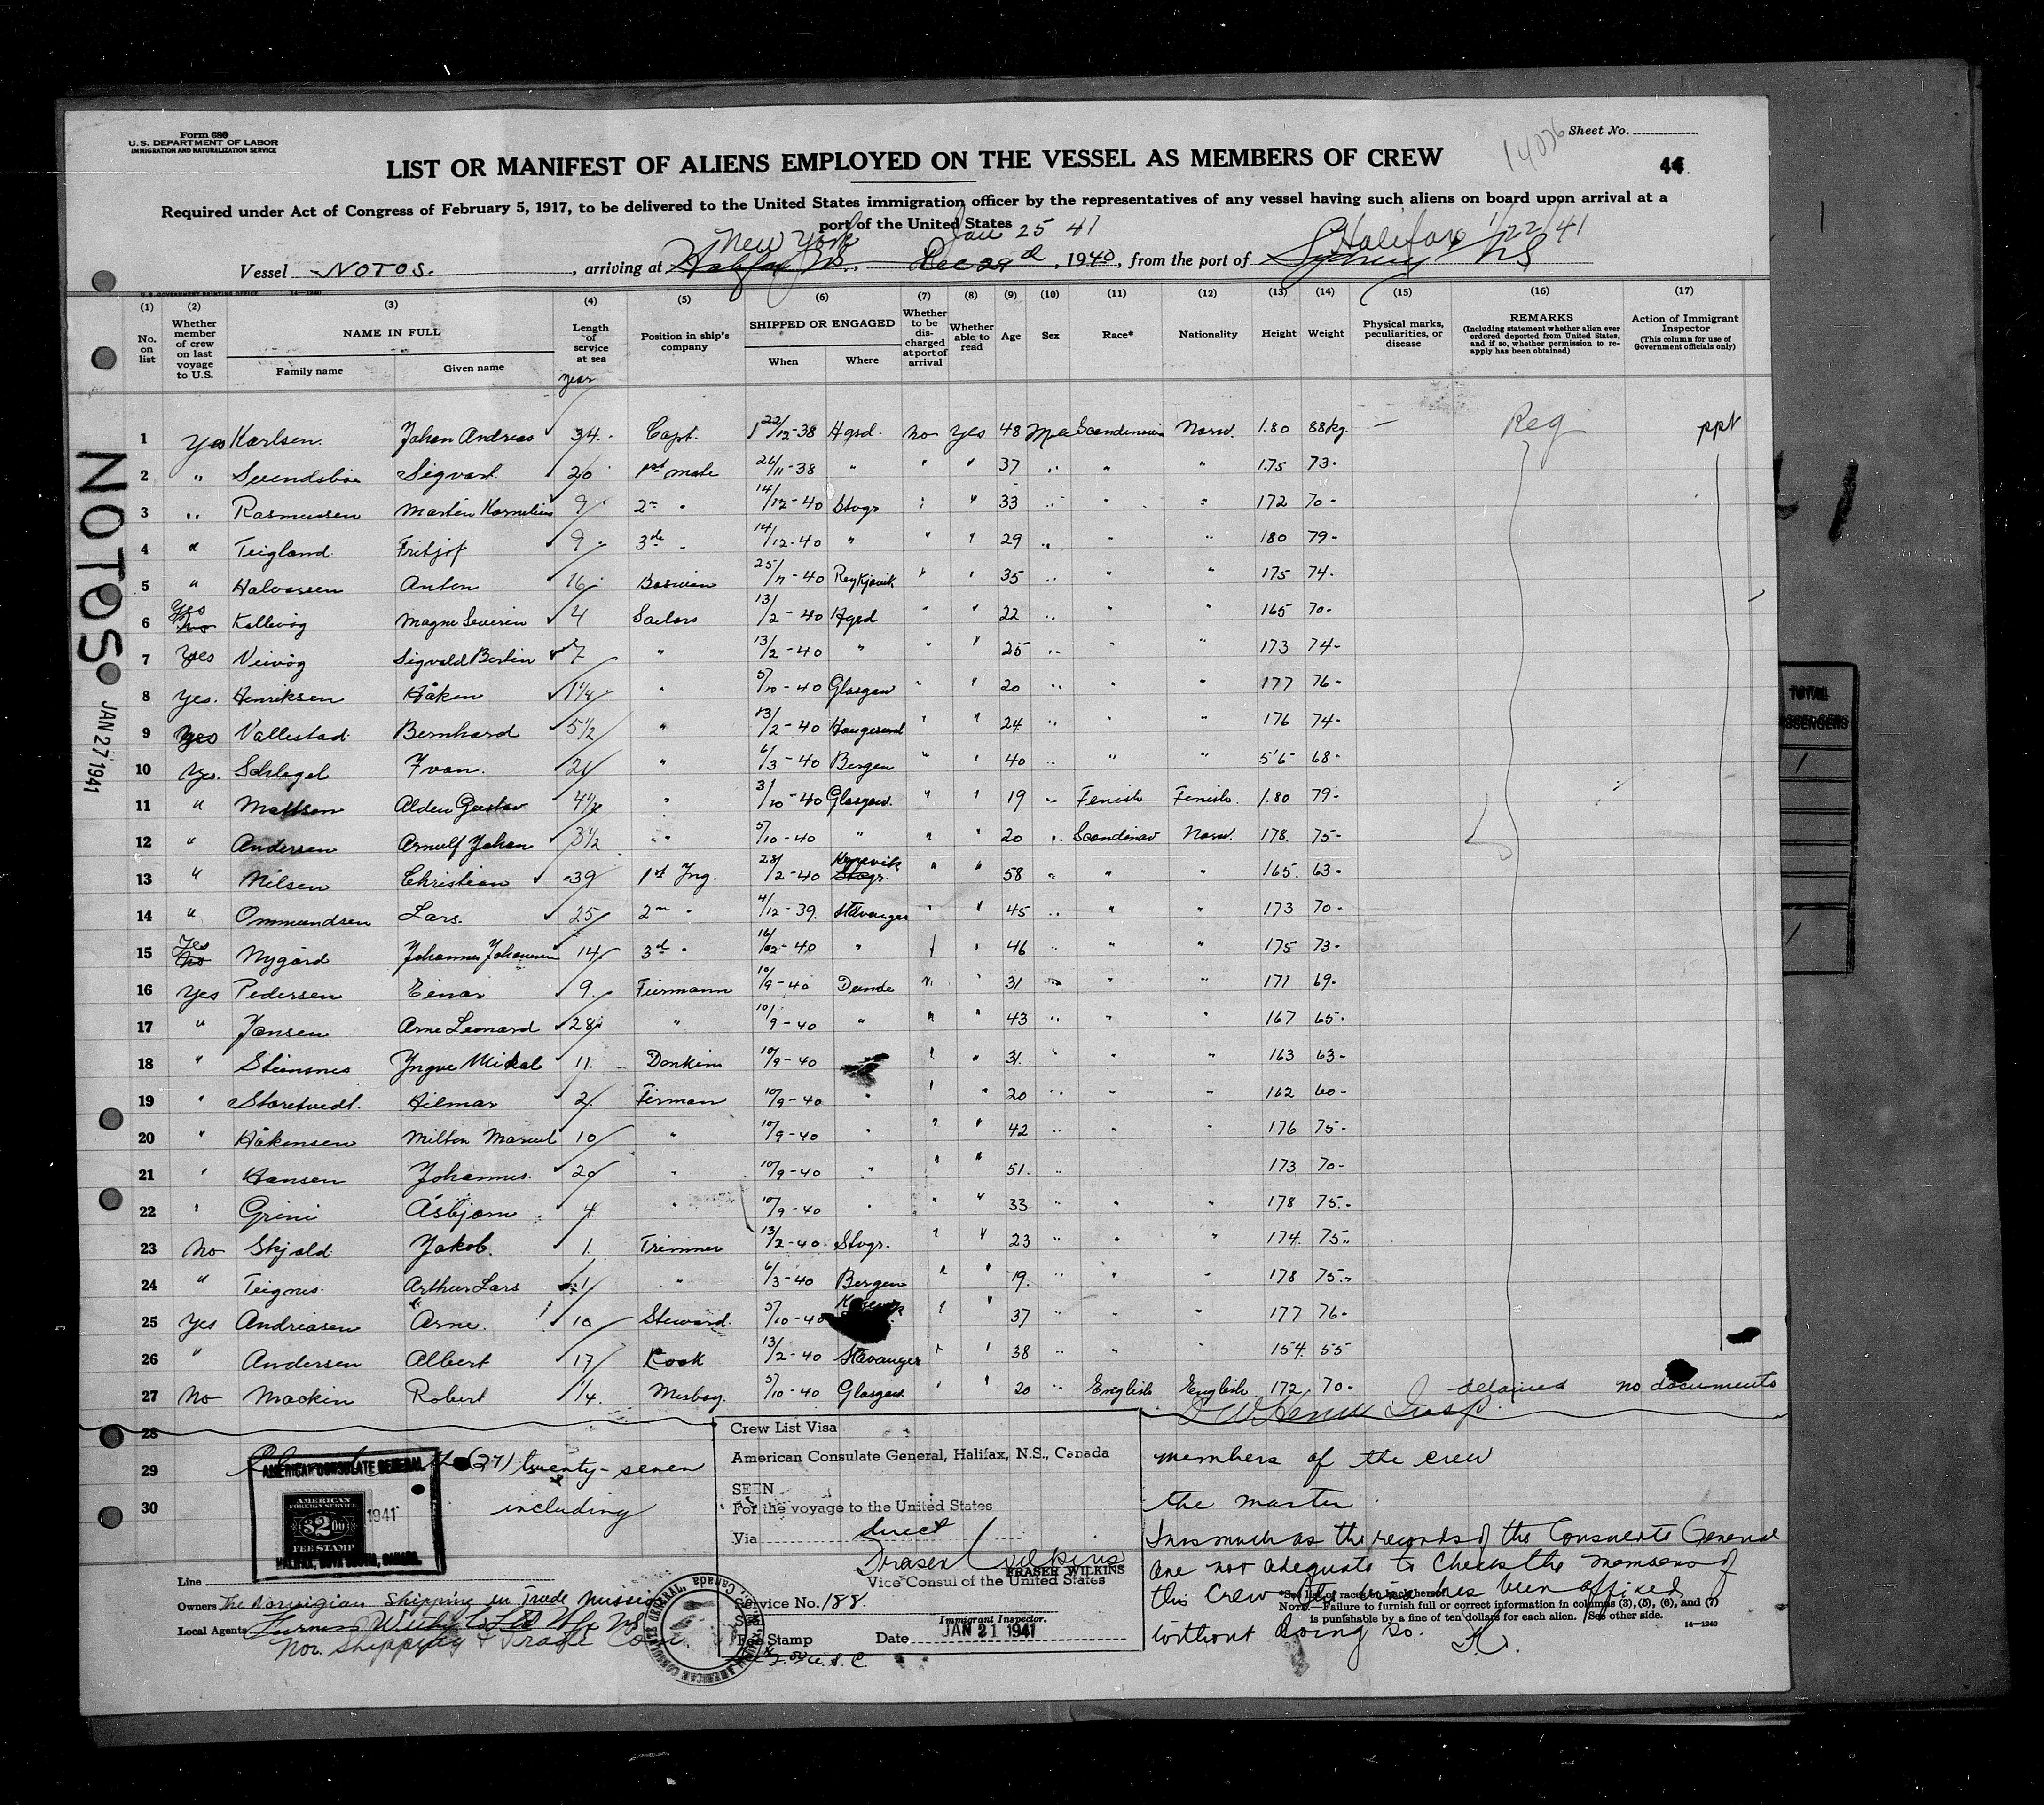 Form 680
U.S. DEPARTMENT OF LABOR
IMMIGRATION AND NATURALIZATION SERVICE
Sheet No.
14036
44
LIST OR MANIFEST OF ALIENS EMPLOYED ON THE VESSEL AS MEMBERS OF CREW
Required under Act of Congress of February 5, 1917, to be delivered to the United States immigration officer by the representatives of any vessel having such aliens on board upon arrival at a
port of the United States
New York Jan 25 41 Halifax 1/22/41
Vessel NOTOS., arriving at Halifax NS., Dec 29th, 1940, from the port of Sydney NS
U.S. GOVERNMENT PRINTING OFFICE 14—1240
(1) (2) (3) (4) (5) (6) (7) (8) (9) (10) (11) (12) (13) (14) (15) (16) (17)
No. on list
Whether member of crew on last voyage to U.S.
NAME IN FULL
Family name Given name
Length of service at sea
year
Position in ship's company
SHIPPED OR ENGAGED
When Where
Whether to be discharged at port of arrival
Whether able to read
Age
Sex
Race*
Nationality
Height
Weight
Physical marks, peculiarities, or disease
REMARKS
(Including statement whether alien ever ordered deported from United States, and if so, whether permission to reapply has been obtained)
Action of Immigrant Inspector
(This column for use of Government officials only)
1 Yes Karlsen. Johan Andreas 34. Capt. 22/12-38 Hgsd. no yes 48 Male Scandinavia Norw. 1.80 88kg. — Reg ppt
2 " Svendsbøe Sigvart 20 1st mate 26/11-38 " " " 37 " " " 1.75 73-
3 " Rasmussen Martin Kornelius 9 2n " 14/12-40 Stvgr " " 33 " " " 172 70-
4 " Teigland Fritjof 9 3de " 14/12-40 " " " 29 " " " 180 79-
5 " Halvorsen Anton 16 Boswien 25/11-40 Reykjavik " " 35 " " " 175 74-
6 Yes No Kallevåg Magne Severin 4 Sailors 13/2-40 Hgsd " " 22 " " " 165 70-
7 Yes Veivåg Sigvald Bertin 7 " 13/2-40 " " " 25 " " " 173 74-
8 Yes. Henriksen Håken 1 1/4 " 5/10-40 Glasgow " " 20 " " " 177 76-
9 Yes Vallestad Bernhard 5 1/2 " 13/2-40 Haugesund " " 24 " " " 176 74-
10 Yes. Schlegel Ivan. 21 " 6/3-40 Bergen " " 40 " " " 5'6 68-
11 " Mattsen Alden Gustav 4 1/2 " 3/10-40 Glasgow. " " 19 " Fenish Fenish. 1.80 79-
12 " Andersen Arnulf Johan 3 1/2 " 5/10-40 " " " 20 " Scandinav Norw. 178. 75-
13 " Nilsen Christian 39 1st Ing. 28/2-40 Kopevik Stvgr. " " 58 " " " 165. 63-
14 " Ommundsen Lars. 25 2n " 4/12-39. Stavanger " " 45 " " " 173 70-
15 Yes No Nygård Johannes Johannesen 14 3d " 16/12-40 " " " 46 " " " 175 73-
16 Yes Pedersen Einar 9. Fiermann 10/9-40 Dunde " " 31 " " " 171 69-
17 " Jansen Arne Leonard 28 " 10/9-40 " " " 43 " " " 167 65-
18 " Steinsnes Yngve Mikal 11. Donkim 10/9-40 " " 31. " " " 163 63-
19 " Storetvedt. Hilmar 2. Firman 10/9-40 " " " 20 " " " 162 60-
20 " Håkensen Milton Marcel 10 " 10/9-40 " " " 42 " " " 176 75-
21 " Hansen Johannes. 20 " 10/9-40 " " " 51. " 173 70-
22 " Greni Åsbjørn 4 " 10/9-40 " " " 33 " " " 178 75-
23 No Skjold Jakob. 1. Trimmer 13/2-40 Stvgr. " " 23 " " " 174. 75-
24 " Teignes. Arthur Lars 1 " 6/3-40 Bergen " " 19. " " " 178 75-
25 Yes Andreasen Arne. 10 Steward. 5/10-40 " " 37 " " " 177 76-
26 " Andersen Albert 17 Kook 13/2-40 Stavanger " " 38 " " " 154. 55
27 No Mackin Robert 1/4. Mesboy. 5/10-40 Glasgow " " 20 " English English. 172 70- detained no documents
28
29
30
(27) twenty-seven
including
members of the crew
the master
Insp.
AMERICAN CONSULATE GENERAL
AMERICAN FOREIGN SERVICE
$2.00
FEE STAMP
1941
HALIFAX, NOVA SCOTIA, CANADA.
Crew List Visa
American Consulate General, Halifax, N.S., Canada
SEEN
For the voyage to the United States
Via direct
Fraser Wilkins
FRASER WILKINS
Vice Consul of the United States
Service No. 188.
Immigrant Inspector.
Fee Stamp
Date JAN 21 1941
Inasmuch as the records of the Consulate General
are not adequate to check the members of
this crew the visa has been affixed
without doing so.
*See list of races on back hereof.
NOTE.—Failure to furnish full or correct information in columns (3), (5), (6), and (7)
is punishable by a fine of ten dollars for each alien. See other side.
14—1240
Line
Owners The Norvigian Shipping in Trade Mission
Local Agents Furness Withy Co Ltd Hfx NS
Nor. Shipping & Trade Com
NOTOS
JAN 27 1941
TOTAL
PASSENGERS
1
1